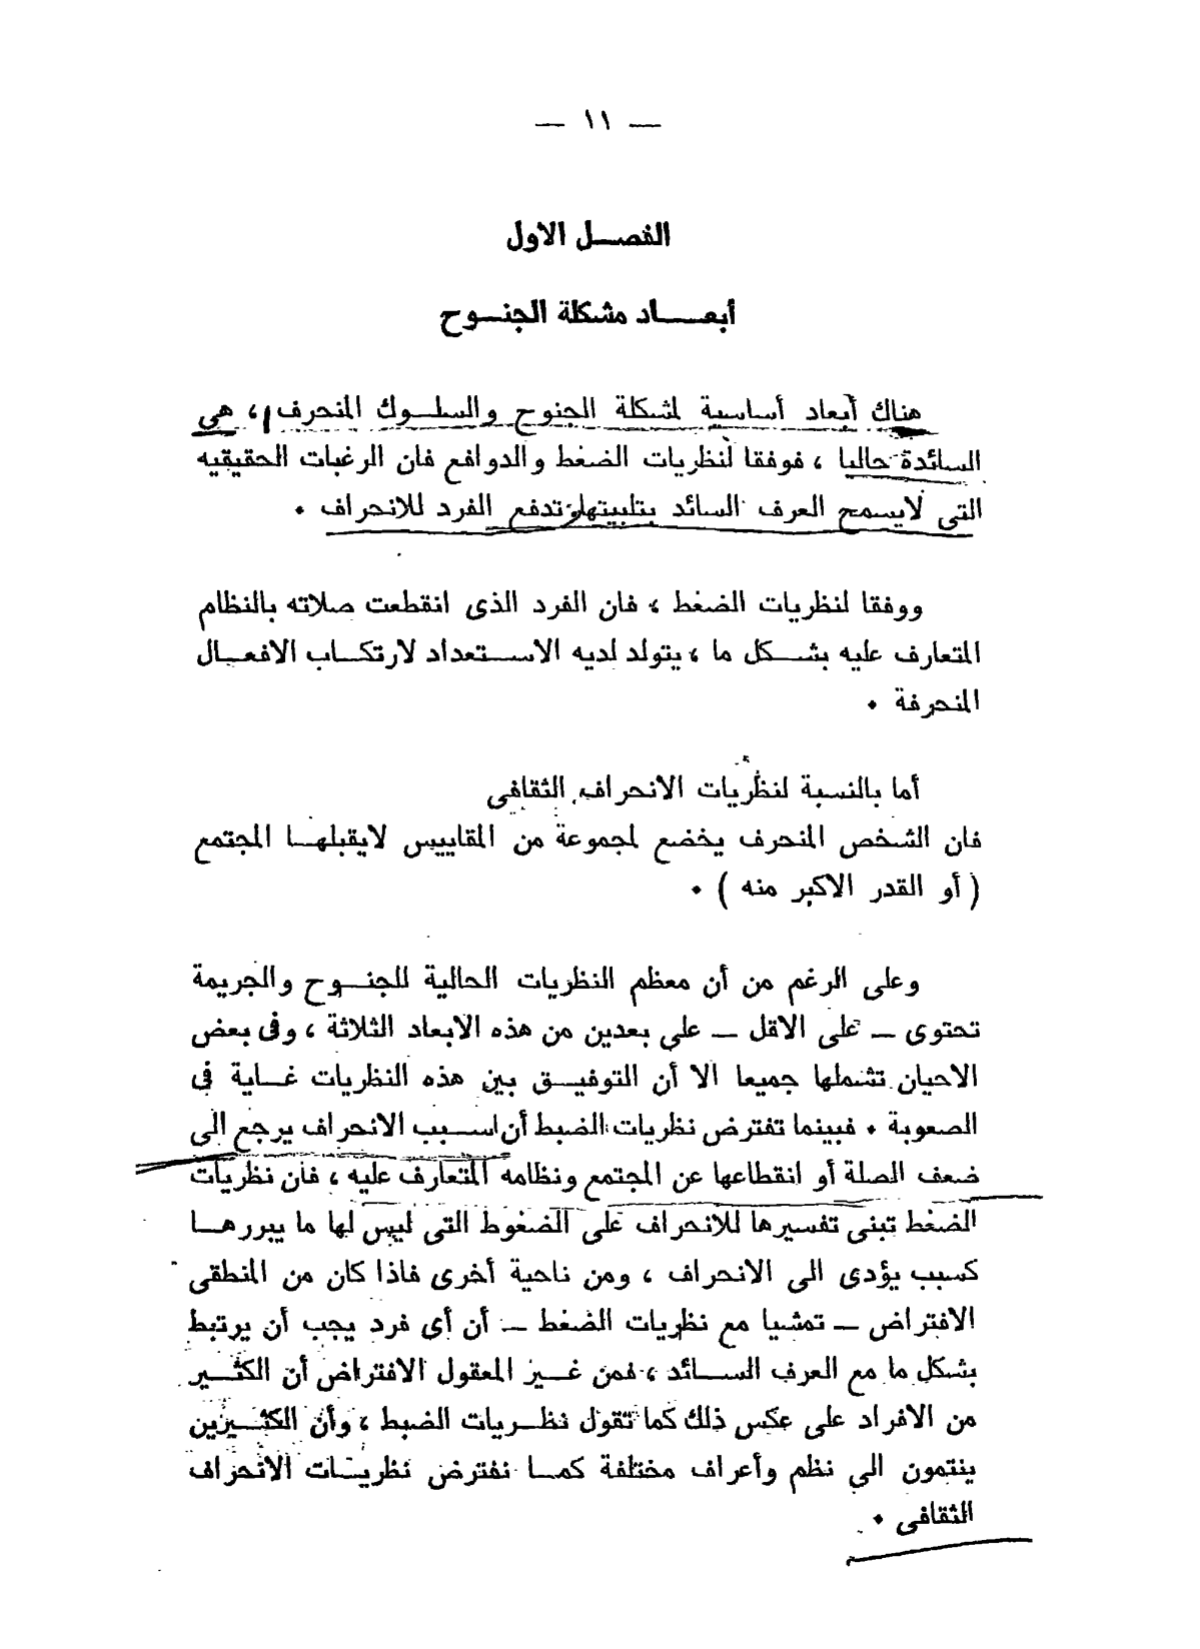 — ١١ —
الفصـــل الاول
أبعـــــاد مشكلة الجنـــوح
هناك أبعاد أساسية لمشكلة الجنوح والسلـــوك المنحرف ، هى
السائدة حاليا ، فوفقا لنظريات الضغط والدوافع فان الرغبات الحقيقيه
التى لايسمح العرف السائد بتلبيتها تدفع الفرد للانحراف ٠
ووفقا لنظريات الضغط ، فان الفرد الذى انقطعت صلاته بالنظام
المتعارف عليه بشـــكل ما ، يتولد لديه الاســـتعداد لارتكـــاب الافعـــال
المنحرفة ٠
أما بالنسبة لنظريات الانحراف الثقافى
فان الشخص المنحرف يخضع لمجموعة من المقاييس لايقبلهـــا المجتمع
( أو القدر الاكبر منه ) ٠
وعلى الرغم من أن معظم النظريات الحالية للجنـــوح والجريمة
تحتوى ـ على الاقل ـ على بعدين من هذه الابعاد الثلاثة ، وفى بعض
الاحيان تشملها جميعا الا أن التوفيـــق بين هذه النظريات غـــاية فى
الصعوبة ٠ فبينما تفترض نظريات الضبط أن ســـبب الانحراف يرجع الى
ضعف الصلة أو انقطاعها عن المجتمع ونظامه المتعارف عليه ، فان نظريات
الضغط تبنى تفسيرها للانحراف على الضغوط التى ليس لها ما يبررهـــا
كسبب يؤدى الى الانحراف ، ومن ناحية أخرى فاذا كان من المنطقى
الافتراض ـ تمشيا مع نظريات الضغط ـ أن أى فرد يجب أن يرتبط
بشكل ما مع العرف الســـائد ، فمن غـــير المعقول الافتراض أن الكثـــير
من الافراد على عكس ذلك كما تقول نظـــريات الضبط ، وأن الكثـــيرين
ينتمون الى نظم وأعراف مختلفة كمـــا نفترض نظريـــات الانحراف
الثقافى ٠